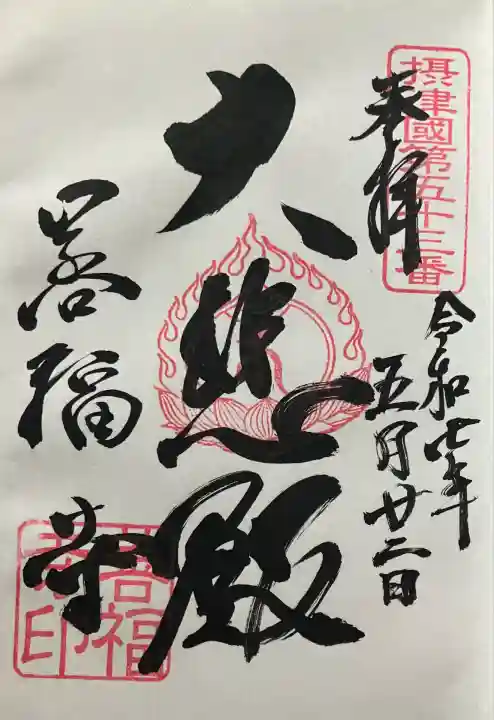 摂津國第五十三番
奉拝
令和七年
五月廿二日
大悲殿
善福寺
善福
寺印